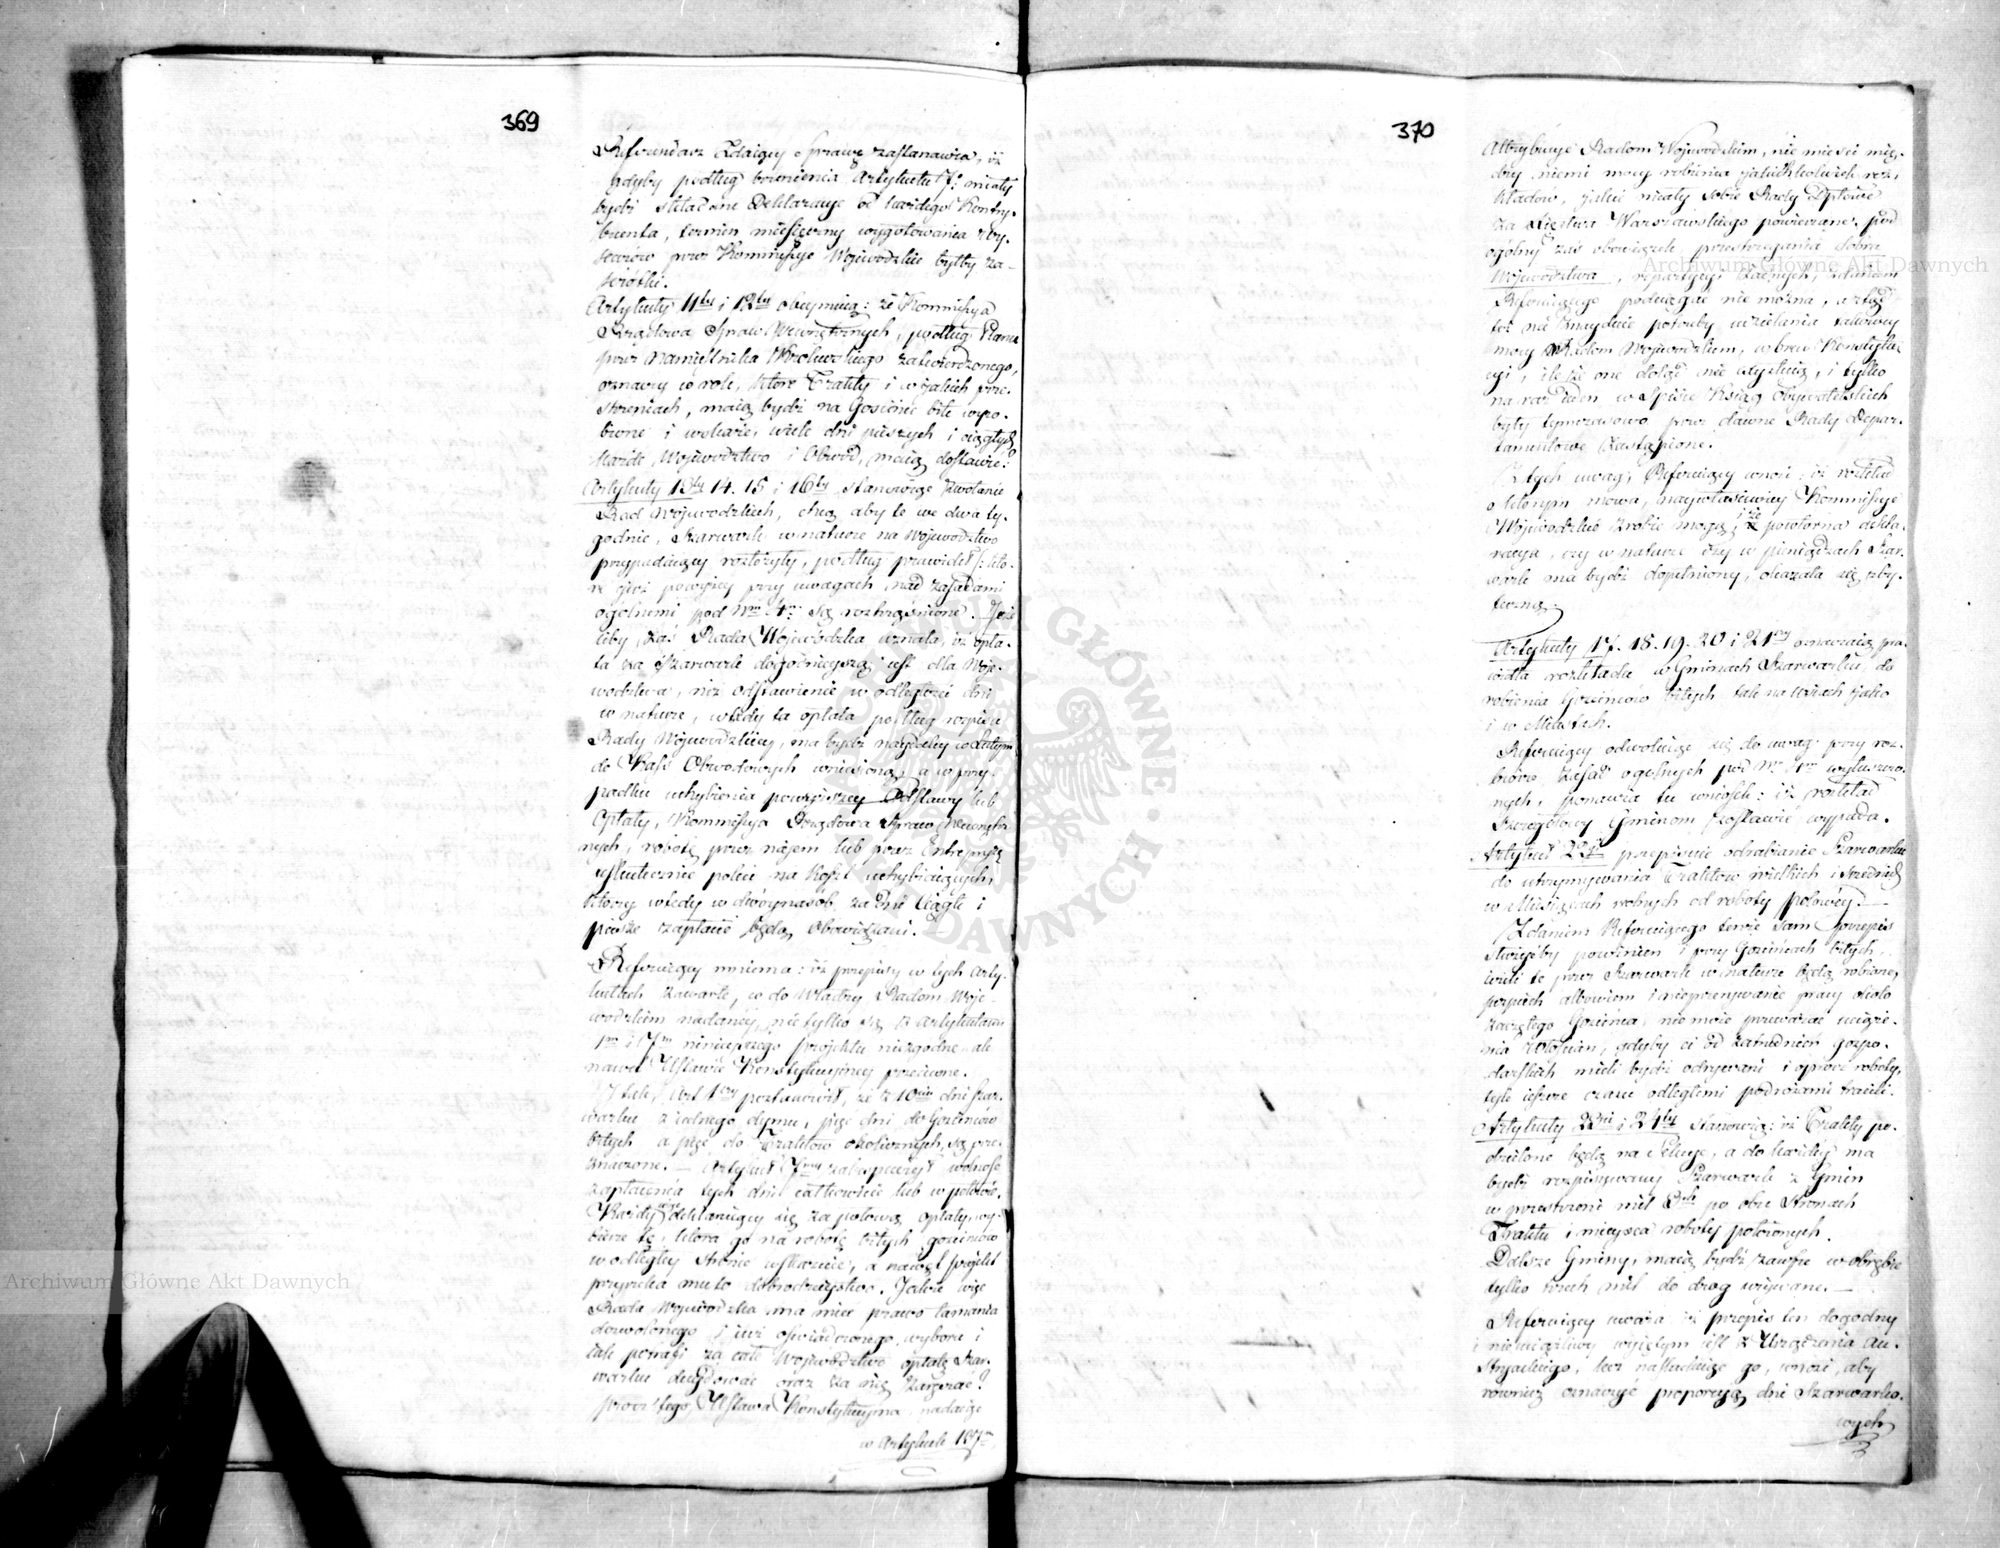 369
Referendarz Zdaiący sprawę zastanawia, iż
gdyby podług brzmienia Artykułu 7º miały
bydź składane Deklaracye od każdego Kontry-
buenta, termin miesięczny wygotowania
przez Kommissye Wojewódzkie byłby za-
krótki.
Artykuły 11ty i 12ty obeymuią: że Kommissya
Rządowa Spraw Wewnętrznych, podług Planu
przez Namiestnika Królewskiego zatwierdzonego,
oznaczy co rok, które Trakty i w iakich prze-
strzeniach, maią bydź na Gościńce bite wyro-
bione i wskaże, wiele dni pieszych i ciągłych
każde Województwo i Obwód, maią dostawić?
Artykuły 13ty 14. 15 i 16ty stanowiąc zwołanie
Rad Wojewódzkich, chcą aby te we dwa ty-
godnie, Szarwark w naturze na Województwo
przypadaiący rozłożyły, podług prawideł /: któ-
re iuż powyżey przy uwagach, nad zasadami
ogólnemi pod Nrm 4m są roztrząśnione. Jeże-
liby zaś Rada Wojewódzka uznała, iż opła-
ta za Szarwark dogodnieyszą iest dla Woje-
wództwa, niż odstawienie w odległości dni
w naturze, wtedy ta opłata podług rozpisu
Rady Wojewódzkiey, ma bydź naydaley w Lutym
do Kass Obwodowych wniesioną, a w przy-
padku uchybienia powyższey Odstawy lub
Opłaty, Kommissya Rządowa Spraw Wewnętrz-
nych, robotę przez naiem lub przez Entrepryzę
uskutecznić poleci na koszt uchybiaiących,
którzy wtedy w dwóynasób za dni ciągłe i
piesze zapłacić będą obowiązani.
Referuiący mniema: iż przepisy w tych Arty-
kułach zawarte, co do władzy Radom Woje-
wódzkim nadaney, nie tylko są z Artykułami
1m i 7m ninieyszego projektu niezgodne, ale
nawet Ustawie Konstytucyiney przeciwne.
I tak, Art 1szy postanowił, że z 10ciu dni Szar-
warku z iednego dymu, pięć dni do Gościńców
bitych a pięć do Traktów okolicznych, są prze-
znaczone. — Artykuł 7my zabezpieczył wolność
zapłacenia tych dni całkowicie lub w połowie.
Każdy deklaruiący się za połową opłaty, wy-
bierze tę, która go na robotę bitych gościńców
w odległey stronie wskazuie, a nawet projekt
przyrzeka mu to dobrodzieystwo. Jakże więc
Rada Wojewódzka ma mieć prawo łamania
dozwolonego i iuż oświadczonego wyboru i
iak potrafi za całe Województwo opłatę Szar-
warku decydować oraz za nię zaręczać?
prócz tego Ustawa Konstytucyina nadaiąc
w Artykule 137m
370
Attrybucye Radom Wojewódzkim, nie mieści mię-
dzy niemi mocy robienia iakichkolwiek roz-
kładów, iakie miały sobie Rady Dptowe
za Xięstwa Warszawskiego powierzane. pod
ogólny zaś obowiązek, przestrzegania dobra
Województwa, repartycyi żadnych, zdaniem
Referuiącego podciągać nie można, a ztąd
też nie znayduie potrzeby udzielania takowey
mocy Radom Wojewódzkim, wbrew Konstytu-
cyi, ile że one dotąd nie istnieią, i tylko
na raz ieden w Spisie Ksiąg Obywatelskich
były tymczasowo przez dawne Rady Depar-
tamentowe zastąpione.
Z tych uwag, Referuiący wnosi: iż rozkład
o którym mowa, naywłaściwiey Kommissye
Wojewódzkie zrobić mogą, i że powtórna dekla-
racya, czy w naturze czy w pieniądzach Szar-
wark ma bydź dopełniony, okazała się zby-
teczną.
Artykuły 17. 18. 19. 20 i 21szy oznaczaią pra-
widła rozkładu w Gminach Szarwarku do
robienia Gościńców bitych tak na wsiach iako
i w Miastach.
Referuiący odwołuiąc się do uwag przy roz-
biorze zasad ogólnych pod Nr 4m wyłuszczo-
nych, ponawia tu wniosek: iż rozkład
szczegółowy Gminom zostawić wypada.
Artykuł 22gi przepisuie odrabianie Szarwarku
do utrzymywania Traktów wielkich i średnich
w Miesiącach wolnych od roboty polowéy. —
Zdaniem Referuiącego tenże sam przepis
służyćby powinien i przy Gościńcach bitych,
ieżeli te przez Szarwark w naturze będą robione,
pośpiech albowiem i nieprzerywanie pracy około
zaczętego Gościńca, nie może przeważać uciąże-
nia Włościan, gdyby ci od zatrudnień gospo-
darskich mieli bydź odrywani i oprócz roboty,
tyle ieszcze czasu odległemi podróżami tracili.
Artykuły 23ci i 24ty stanowią: iż Trakty po-
dzielone będą na Sekcye, a do każdey ma
bydź rozpisywany Szarwark z Gmin
w przestrzeni mil 3ch po obu stronach
Traktu i mieysca roboty położonych.
Dalsze Gminy, maią bydź zawsze w obrębie
tylko trzech mil do dróg wzywane. —
Referuiący uważa iż przepis ten dogodny
i nieuciążliwy wyiętym iest z Urządzenia Au-
stryackiego, lecz naśladuiąc go, wnosi, aby
również oznaczyć proporcyą dni Szarwarko-
wych
Archiwum Główne Akt Dawnych
Archiwum Główne Akt Dawnych
ARCHIWUM GŁÓWNE AKT DAWNYCH